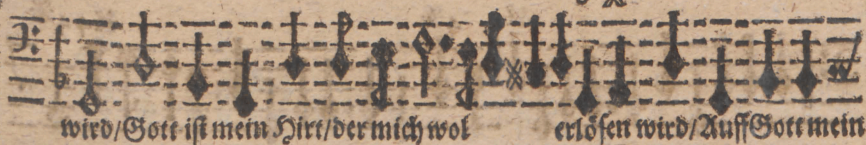 wird/Gott ist mein Hirt/der mich wol erlösen wird/Auff Gott mein